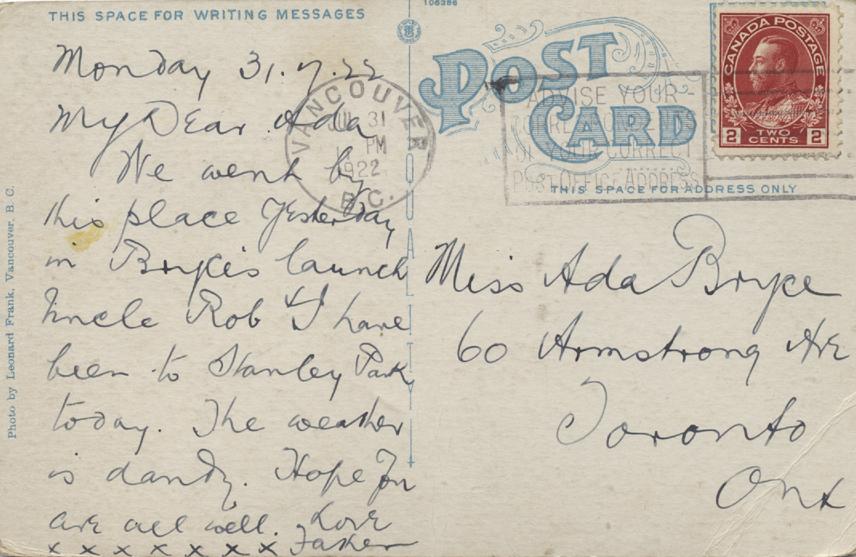 THIS SPACE FOR WRITING MESSAGES
106386
POST
CARD
CANADA POSTAGE
2 TWO CENTS 2
VANCOUVER
JUL 31
PM
1922
B.C.
ADVISE YOUR
CORRECT
POST OFFICE ADDRESS
THIS SPACE FOR ADDRESS ONLY
Monday 31.7.22
My Dear Ada
We went by
this place Yesterday
in Bryce's launch
Uncle Rob & I have
been to Stanley Park
today. The weather
is dandy. Hope you
are all well. Love
x x x x x x x x Father
Miss Ada Bryce
60 Armstrong Ave
Toronto
Ont
Photo by Leonard Frank, Vancouver, B. C.